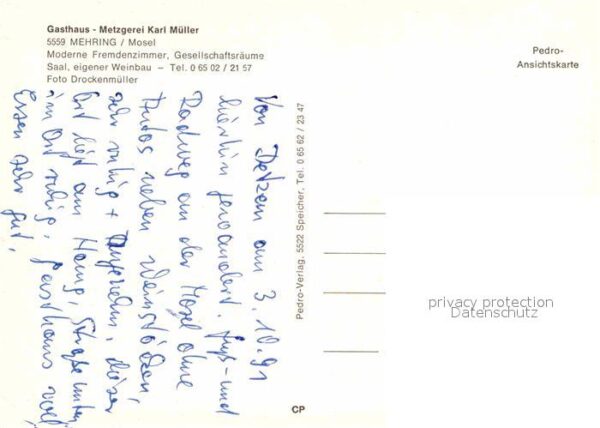 Gasthaus - Metzgerei Karl Müller
5559 MEHRING / Mosel
Moderne Fremdenzimmer, Gesellschaftsräume
Saal, eigener Weinbau – Tel. 0 65 02 / 21 57
Foto Drockenmüller
Pedro-
Ansichtskarte
Von Detzem am 3.10.91
hierhin gewandert. Fuß- und
Radweg an der Mosel ohne
Autos neben Weinstöcken
sehr ruhig + angenehm, dieser
Ort liegt am Hang, Straße unten
im Ort ruhig, Gasthaus voll,
Essen sehr gut.
Pedro-Verlag, 5522 Speicher, Tel. 0 65 62 / 23 47
privacy protection
Datenschutz
CP